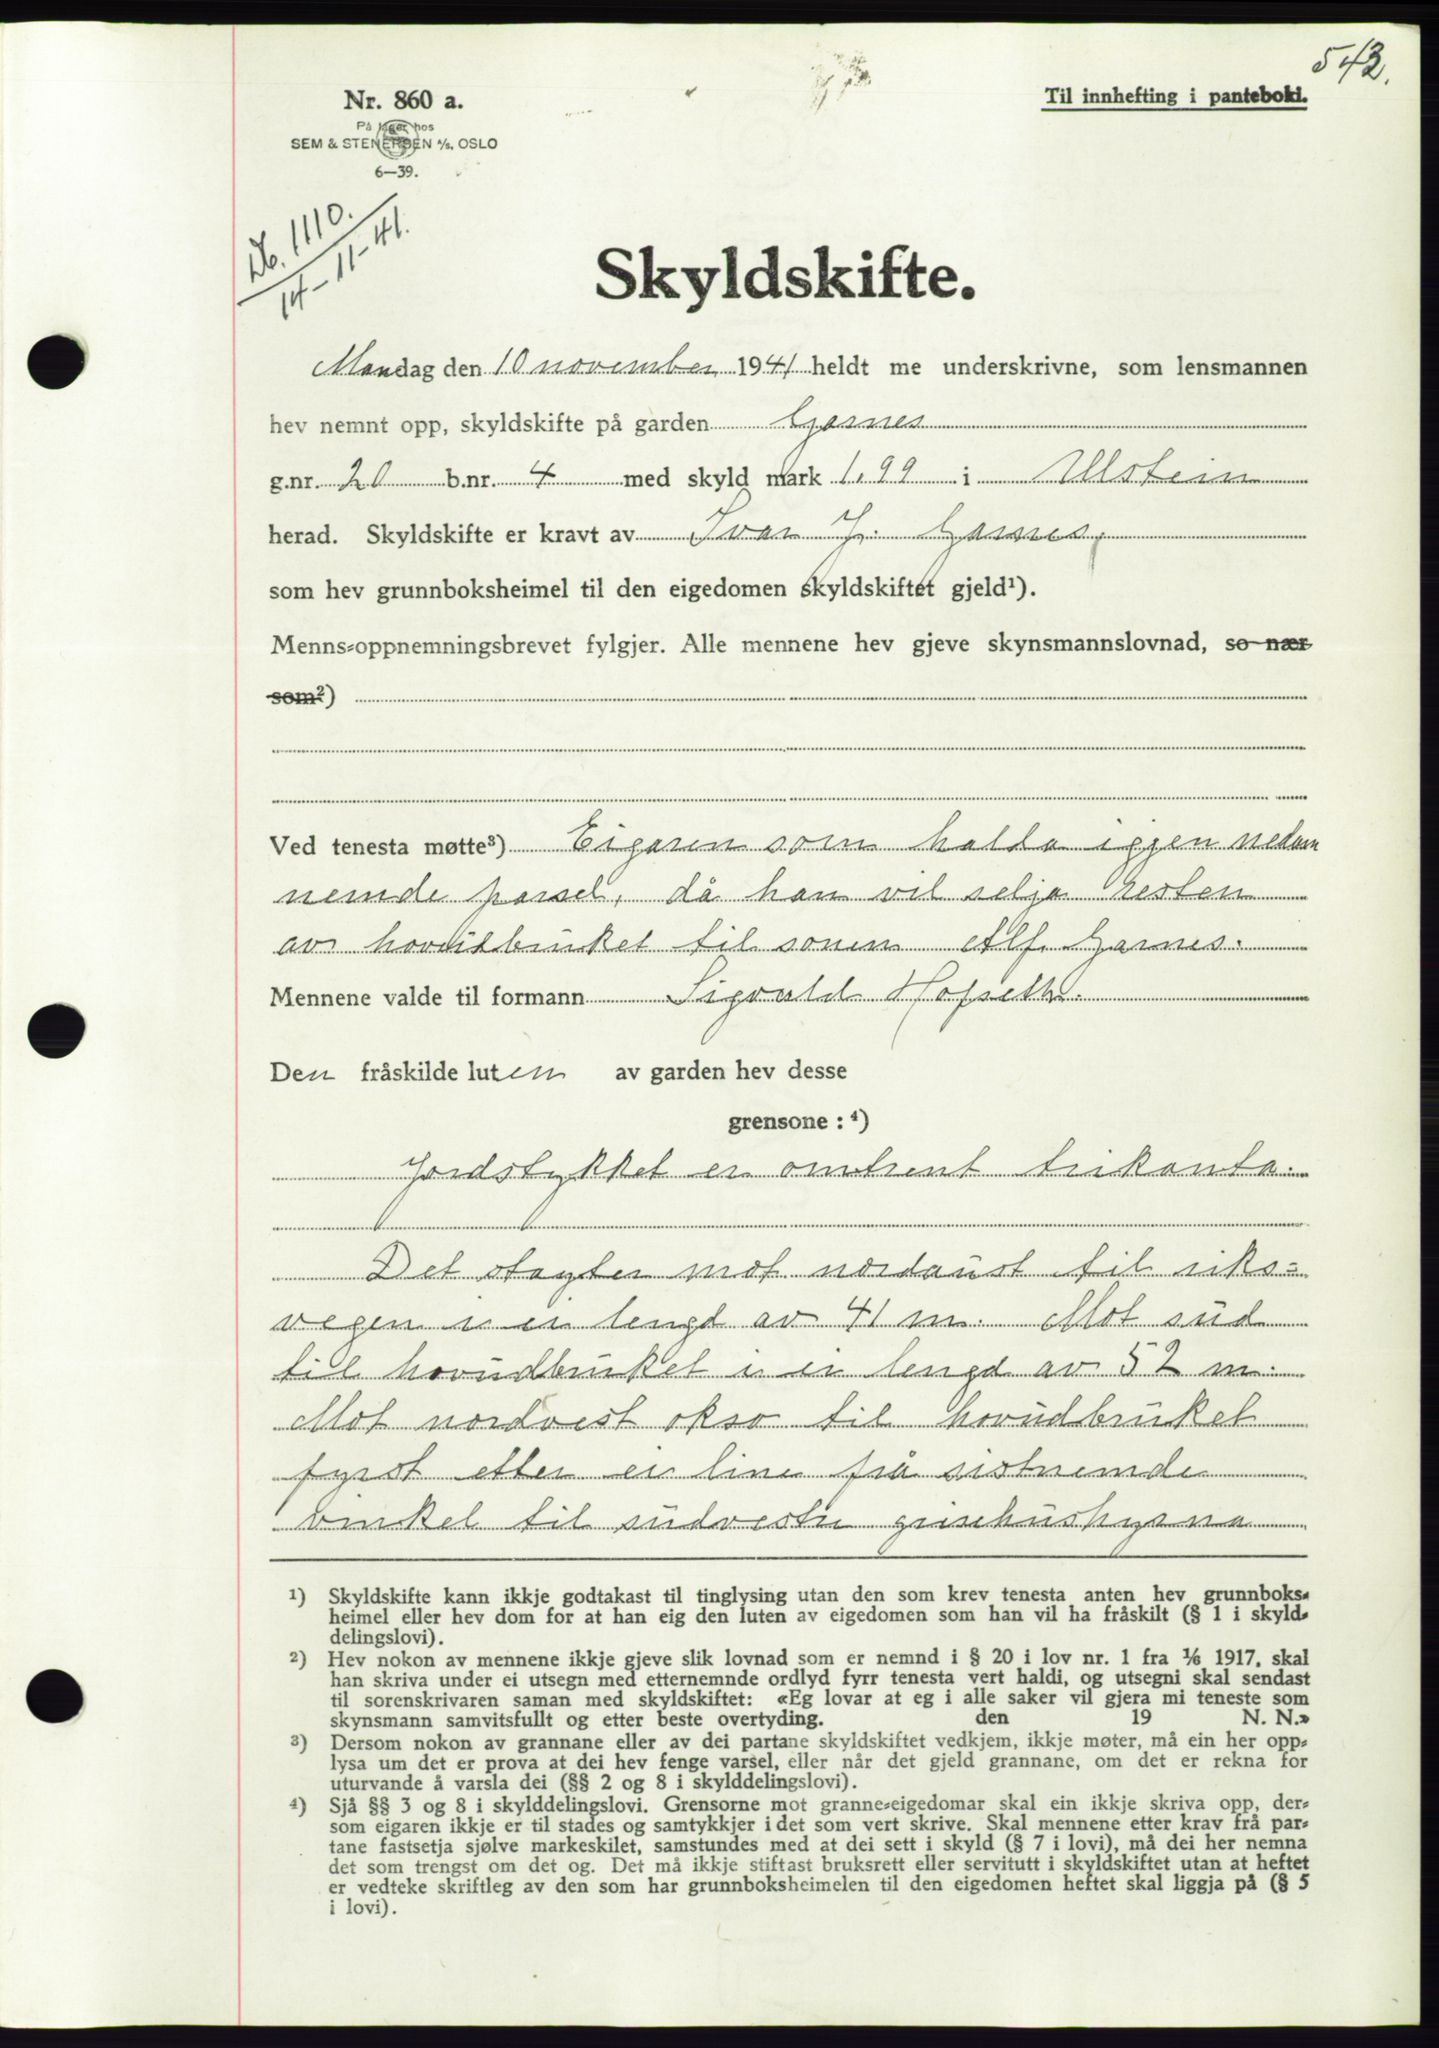 543.
Nr. 860 a.
Til innhefting i panteboki.
På lager hos
SEM & STENERSEN A/S, OSLO
6—39.
Db. 1110.
14-11-41.
Skyldskifte.
Mandag den 10 november 1941 heldt me underskrivne, som lensmannen
hev nemnt opp, skyldskifte på garden Garnes
g.nr. 20 b.nr. 4 med skyld mark 1,99 i Ulstein
herad. Skyldskifte er kravt av Ivar J. Garnes,
som hev grunnboksheimel til den eigedomen skyldskiftet gjeld¹).
Menns-oppnemningsbrevet fylgjer. Alle mennene hev gjeve skynsmannslovnad, so nær
som²)
Ved tenesta møtte³) Eigaren som halda iggen nedan
nemde parsel, då han vil selja resten
av hovudbruket til sonen Alf Garnes.
Mennene valde til formann Sigvald Hofseth.
Den fråskilde luten av garden hev desse
grensone : ⁴)
Jordstykket er omtrent trikanta.
Det støyter mot nordaust til riks=
vegen i ei lengd av 41 m. Mot sud
til hovudbruket i ei lengd av 52 m.
Mot nordvest okso til hovudbruket
fyrst etter ei line frå sistnemde
vinkel til sudvestre grisehushyrna
¹) Skyldskifte kann ikkje godtakast til tinglysing utan den som krev tenesta anten hev grunnboks-
heimel eller hev dom for at han eig den luten av eigedomen som han vil ha fråskilt (§ 1 i skyld-
delingslovi).
²) Hev nokon av mennene ikkje gjeve slik lovnad som er nemnd i § 20 i lov nr. 1 fra 1/6 1917, skal
han skriva under ei utsegn med etternemnde ordlyd fyrr tenesta vert haldi, og utsegni skal sendast
til sorenskrivaren saman med skyldskiftet: «Eg lovar at eg i alle saker vil gjera mi teneste som
skynsmann samvitsfullt og etter beste overtyding. den 19 N. N.»
³) Dersom nokon av grannane eller av dei partane skyldskiftet vedkjem, ikkje møter, må ein her opp-
lysa um det er prova at dei hev fenge varsel, eller når det gjeld grannane, om det er rekna for
uturvande å varsla dei (§§ 2 og 8 i skylddelingslovi).
⁴) Sjå §§ 3 og 8 i skylddelingslovi. Grensorne mot granne-eigedomar skal ein ikkje skriva opp, der-
som eigaren ikkje er til stades og samtykkjer i det som vert skrive. Skal mennene etter krav frå par-
tane fastsetja sjølve markeskilet, samstundes med at dei sett i skyld (§ 7 i lovi), må dei her nemna
det som trengst om det og. Det må ikkje stiftast bruksrett eller servitutt i skyldskiftet utan at heftet
er vedteke skriftleg av den som har grunnboksheimelen til den eigedomen heftet skal liggja på (§ 5
i lovi).